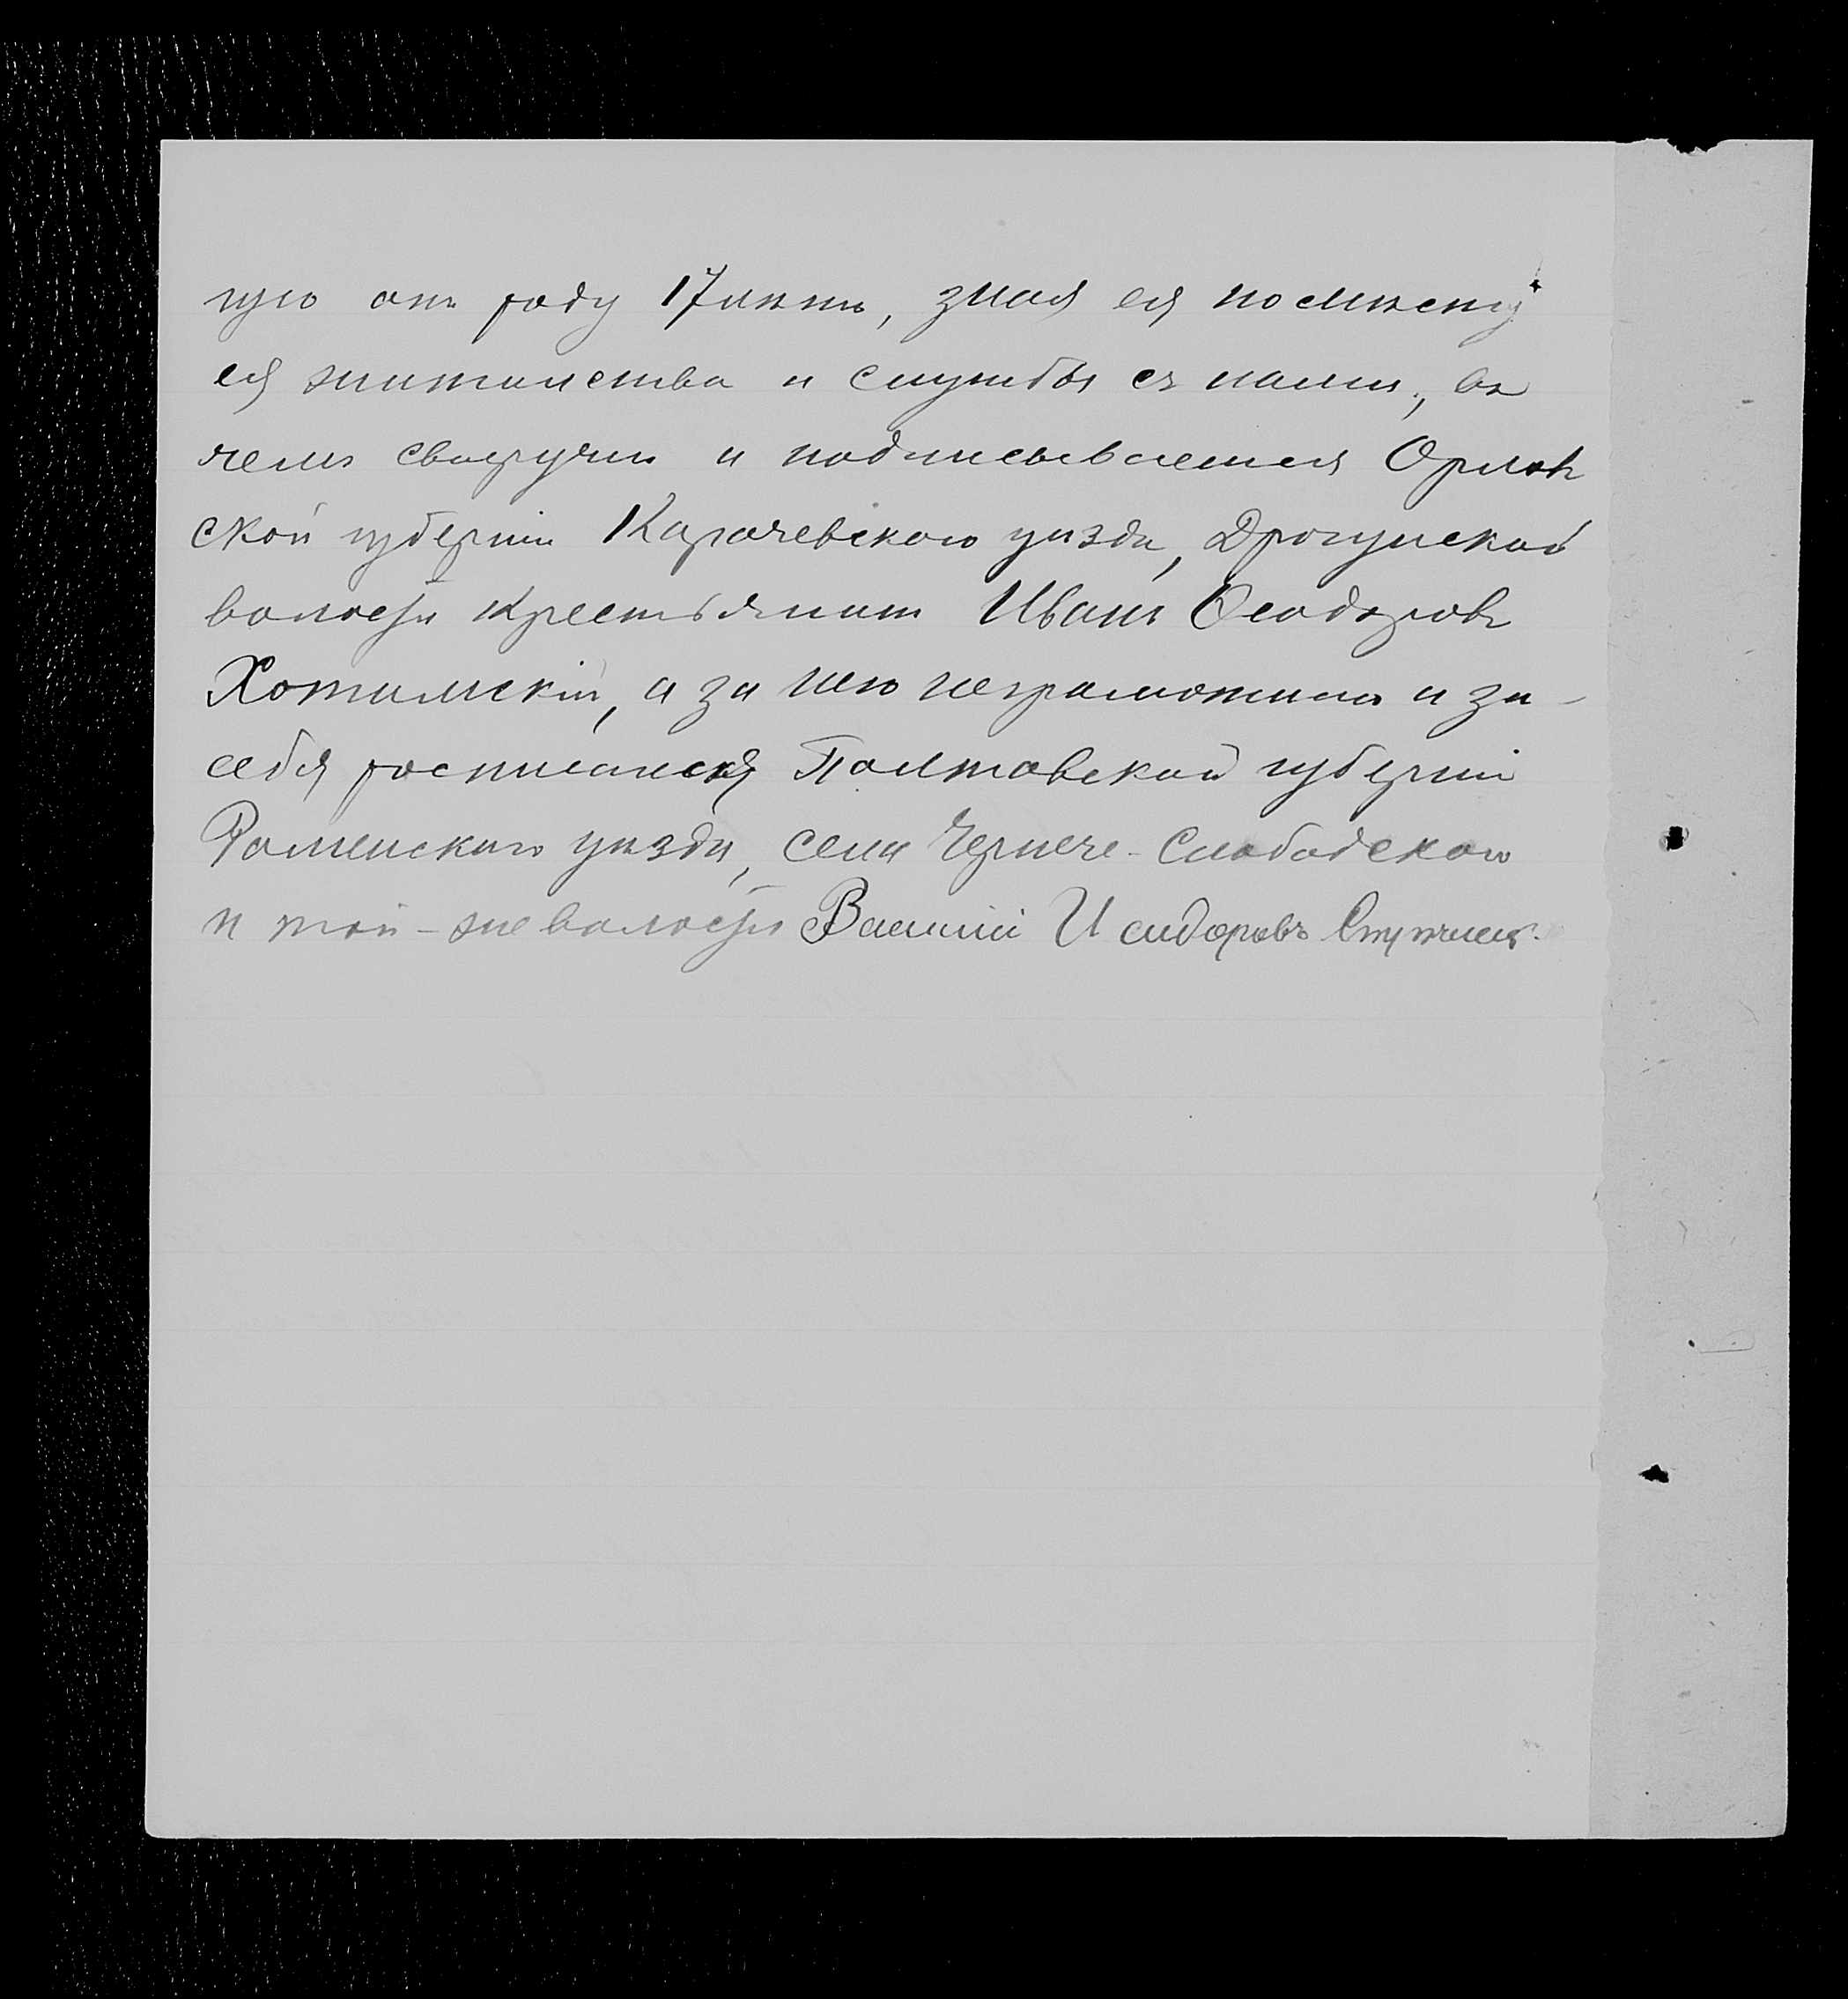 ную отъ роду 17 лѣтъ, зная ея по мѣсту
ея жительства и службы съ нами, въ
чемъ своеручно и подписываемся Орлов
ской губерніи Карачевского уѣзда, Драгунской
волости крестьянинъ Иванъ Ѳеодоровъ
Хотимскій, а за него неграмотнаго и за
себя росписался Полтавской губерніи
Роменского уѣзда, села Чернече-Слободского
и той-же волости Василій Исидоровъ